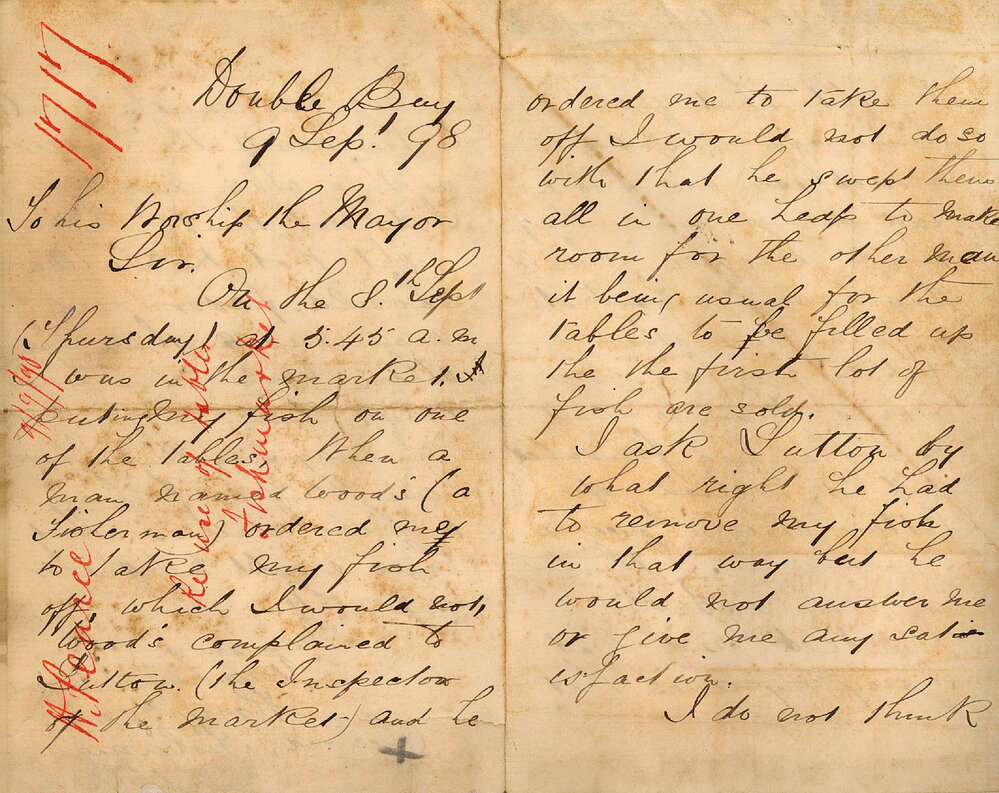 1717
Double Bay
9 Sept 98
To his Worship the Mayor
Sir.
On the 8th Sept
(Thursday) at 5.45 a.m
I was in the market.
puting my fish on one
of the tables. When a
man named Woods (a
Fisherman) ordered me
to take my fish
off, which I would not,
Woods complained to
Sutton. (the Inspector
of the market) and he
ordered me to take them
off I would not do so
with that he swept them
all in one heap to make
room for the other man
it being usual for the
tables to be filled up
the the first lot of
fish are sold.
I ask Sutton by
what right he had
to remove my fish
in that way but he
would not answer me
or give me any satis
isfaction.
I do not think
9/9/98
Re use of tables
Fishmarket